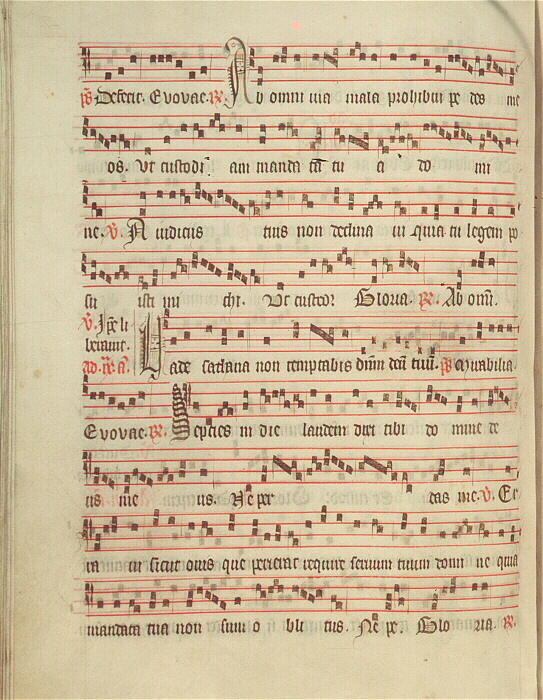 ps Defecit. Evovae. R. Ab omni via mala prohibui pe des me
os. Ut custodi am manda ta tu a do mi
ne. V. A iudiciis tuis non declina vi quia tu legem po
su isti mi chi. Ut custod Gloria. R. Ab omi.
V. Ipse li
beravit.
Vade sathana non temptabis dnm deu tuu. ps Myrabilia.
Evovae. R. Septies in die laudem dixi tibi do mine de
us me us. Ne per das me. V. Er
ra vi sicut ovis que perierat require servum tuum domi ne quia
mandata tua non sum o bli tus. Ne pe. Glo ria. R.